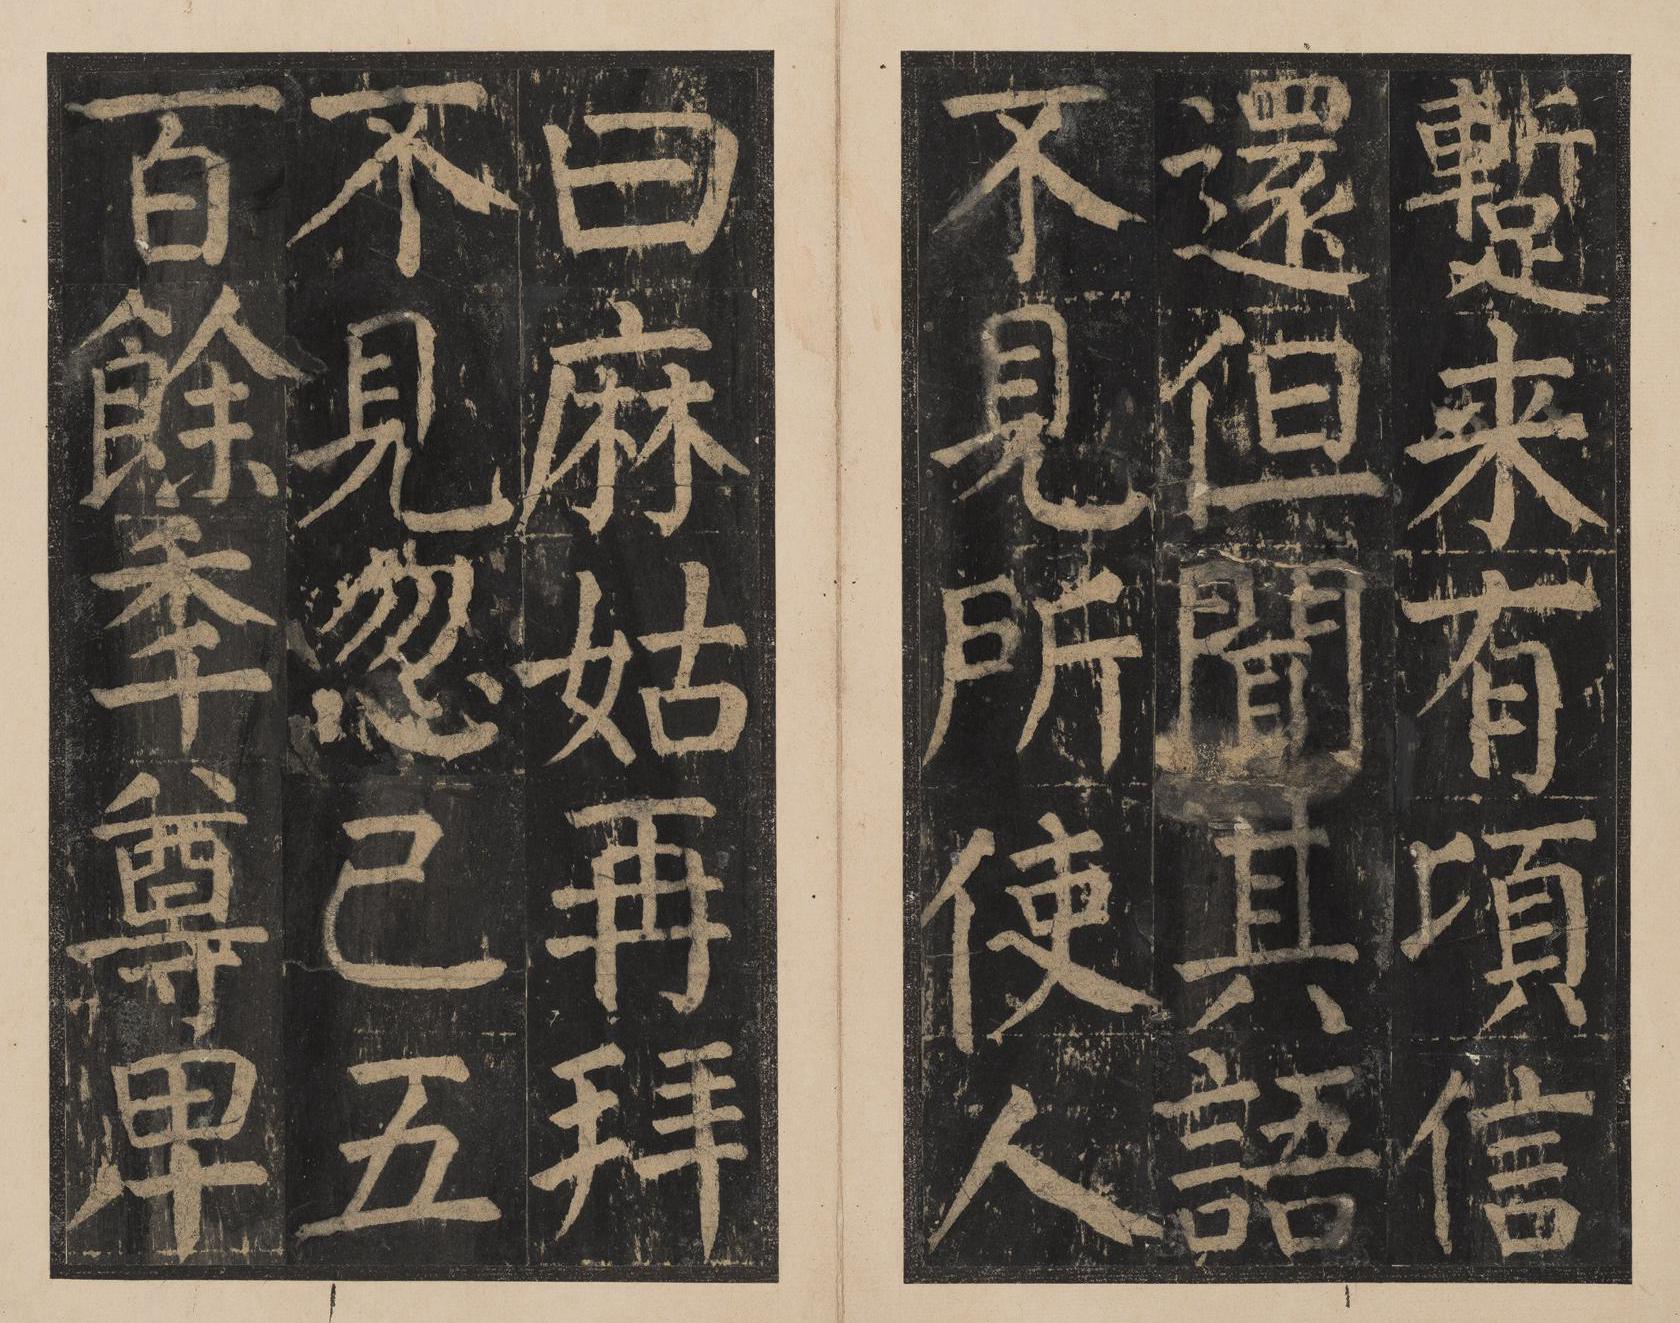 蹔来有頃信
還但聞其語
不見所使人
曰麻姑再拜
不見忽已五
百餘季尊卑